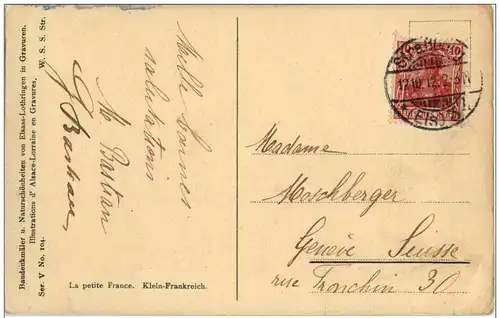 Baudenkmäler u. Naturschönheiten von Elsass-Lothringen in Gravuren.
Illustrations d' Alsace-Lorraine en Gravures. W. S. S. Str.
Ser. V No. 104.
Mille bonnes
salutations
M. Bastian
G Bastian
La petite France. Klein-Frankreich.
10
Madame
Moschberger
Genève Suisse
rue 30